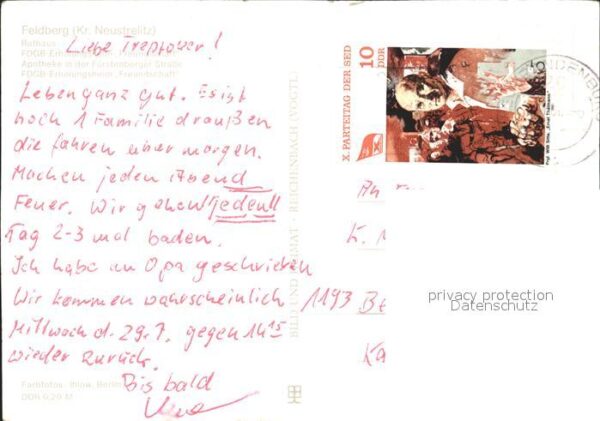 Feldberg (Kr. Neustrelitz)
Rathaus
FDGB-Erholungsheim
Apotheke in der Fürstenberger Straße
FDGB-Erholungsheim „Freundschaft"
Liebe Treptower!
Leben ganz gut. Es ist
noch 1 Familie draußen
die fahren aber morgen.
Machen jeden Abend
Feuer. Wir gehen jeden!!
Tag 2-3 mal baden.
Ich habe an Opa geschrieben
Wir kommen wahrscheinlich
Mittwoch d. 29.7. gegen 14 15
wieder zurück.
Bis bald
Farbfotos: Ihlow, Berlin
DDR 0,20 M
BILD UND HEIMAT - REICHENBACH (VOGTL)
X. PARTEITAG DER SED
10
DDR
Prof. Willi Sitte, „Ernst Thälmann"
An
K.
1193 Be
Ka
privacy protection
Datenschutz